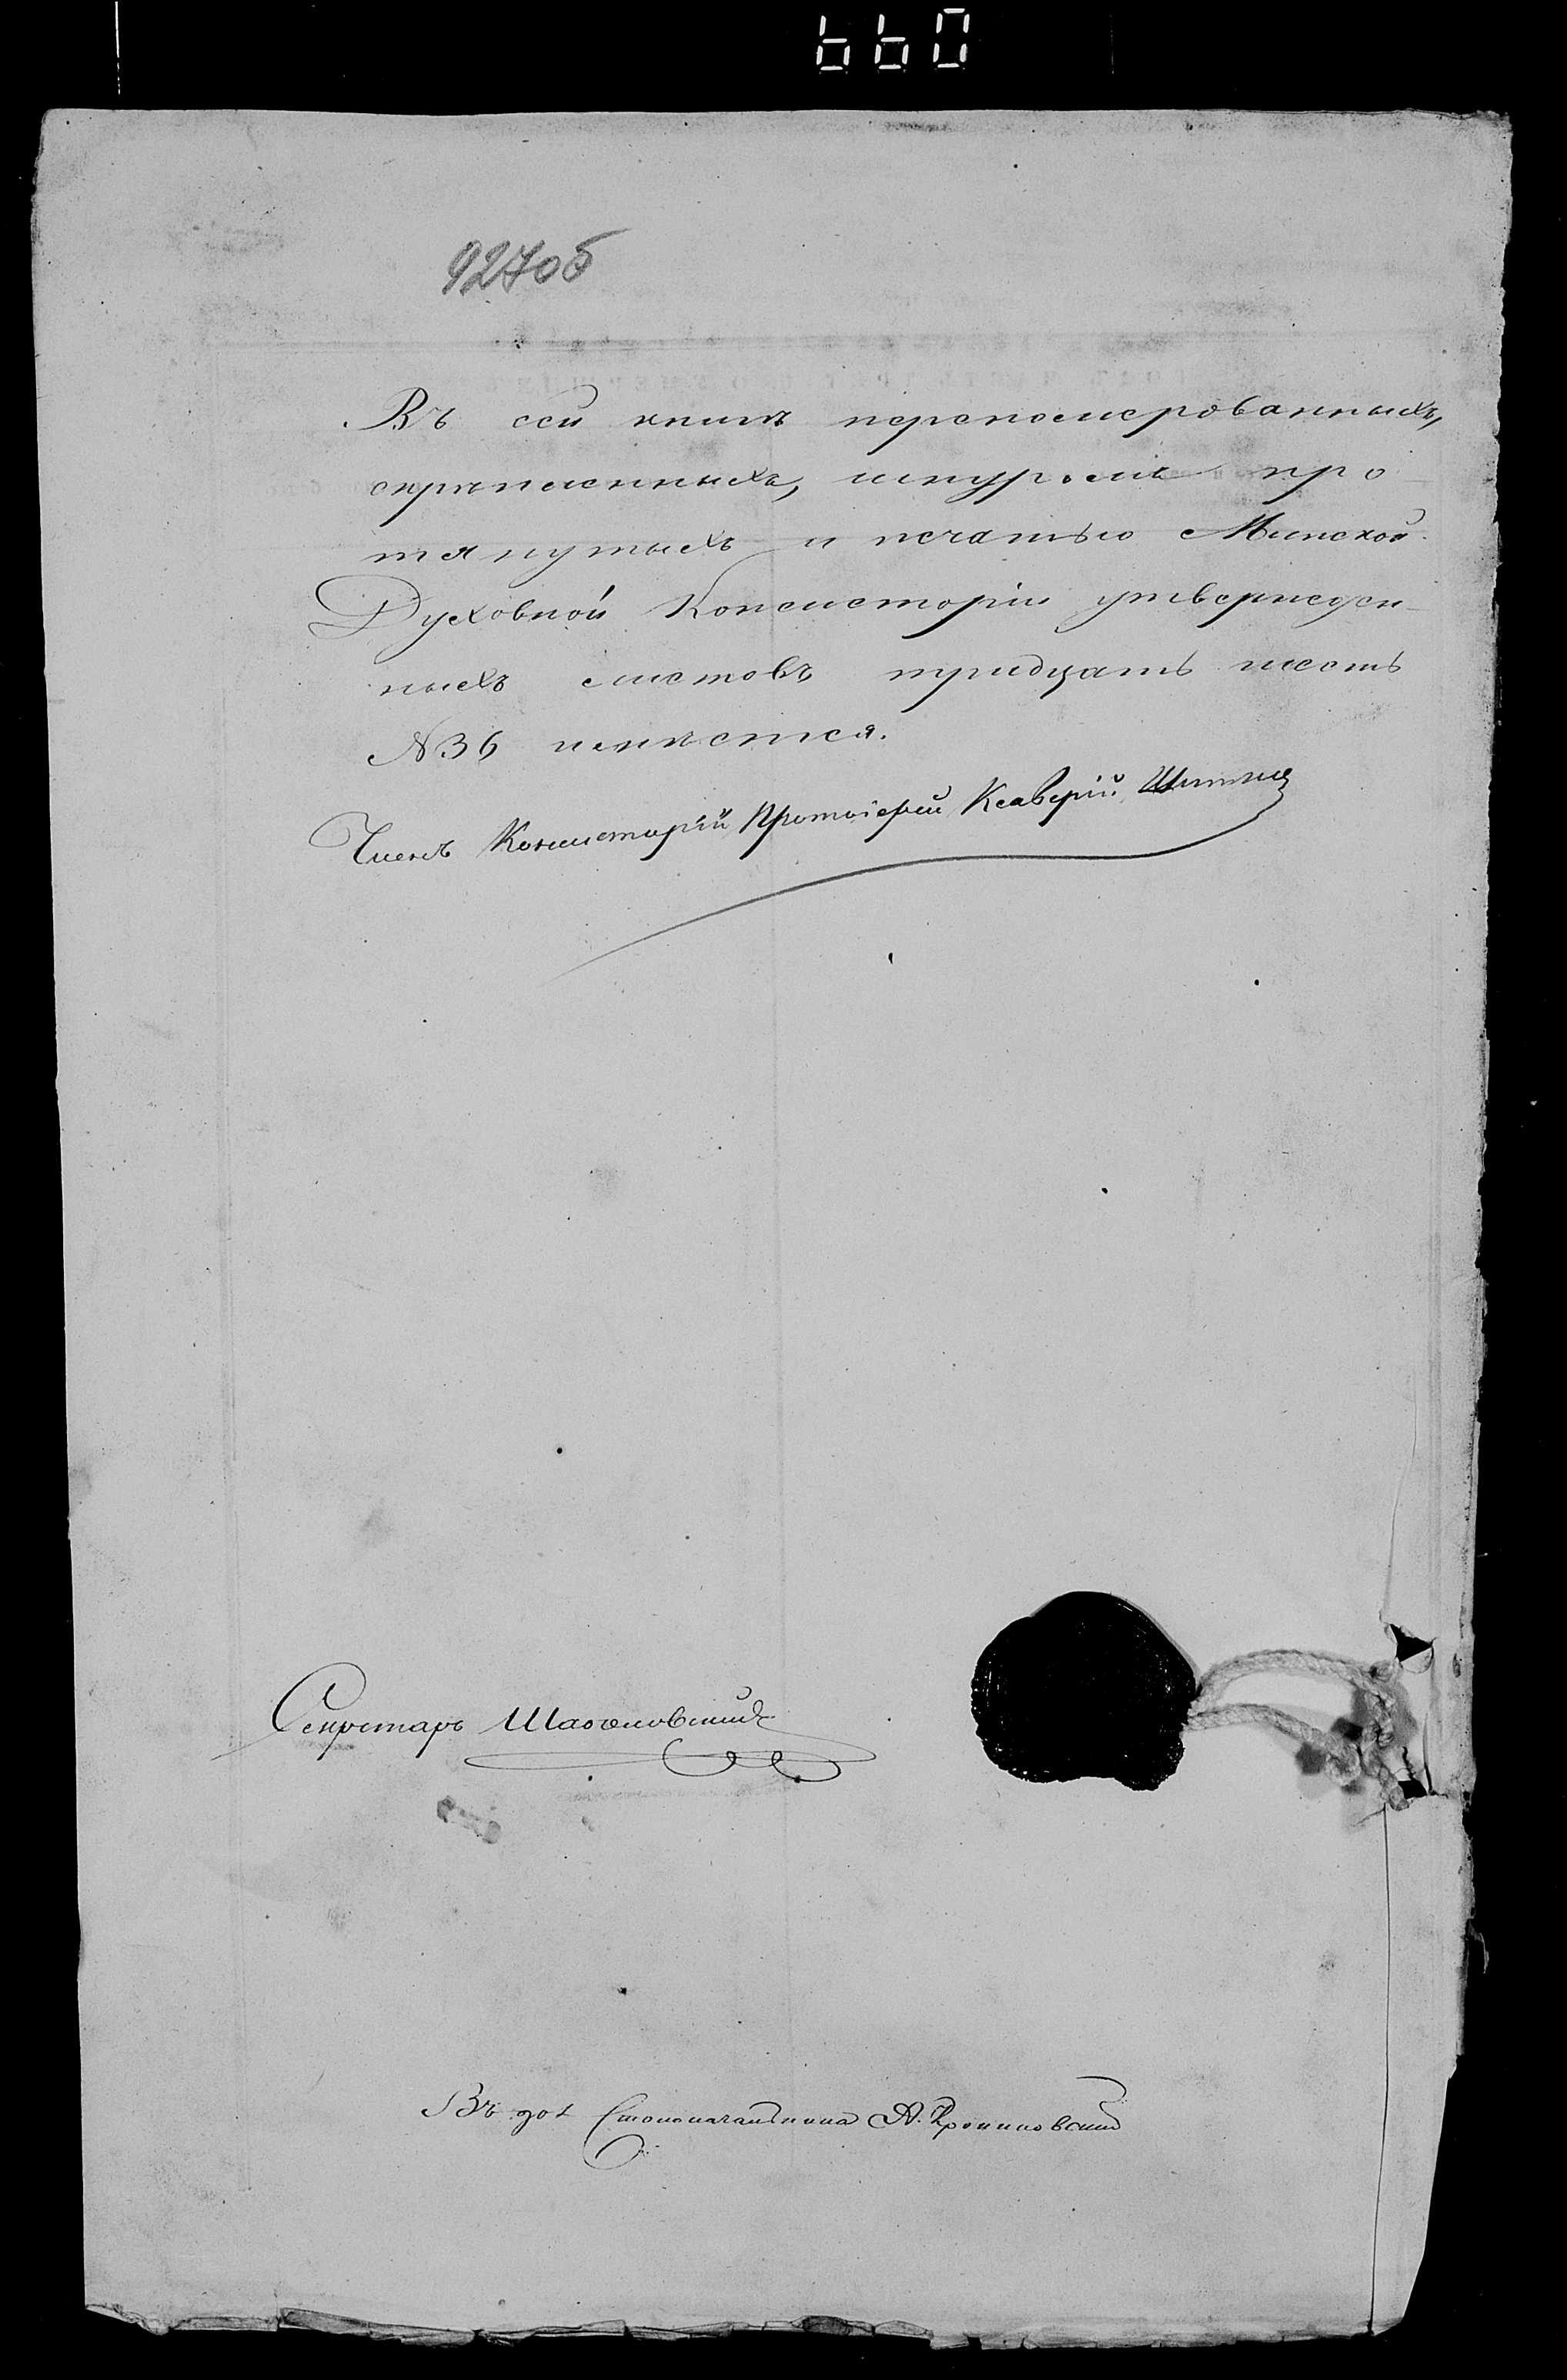 660
927об
Въ сей книгѣ перенумерованныхъ,
скрѣпленныхъ, шнуромъ про
тянутыхъ и печатью Минской
Духовной Консисторіи утвержден-
ныхъ листовъ тридцать шесть
№ 36 имѣется.
Членъ Консисторіи Протоіерей Ксаверій
Секретарь
Въ дол Столоначальника А.